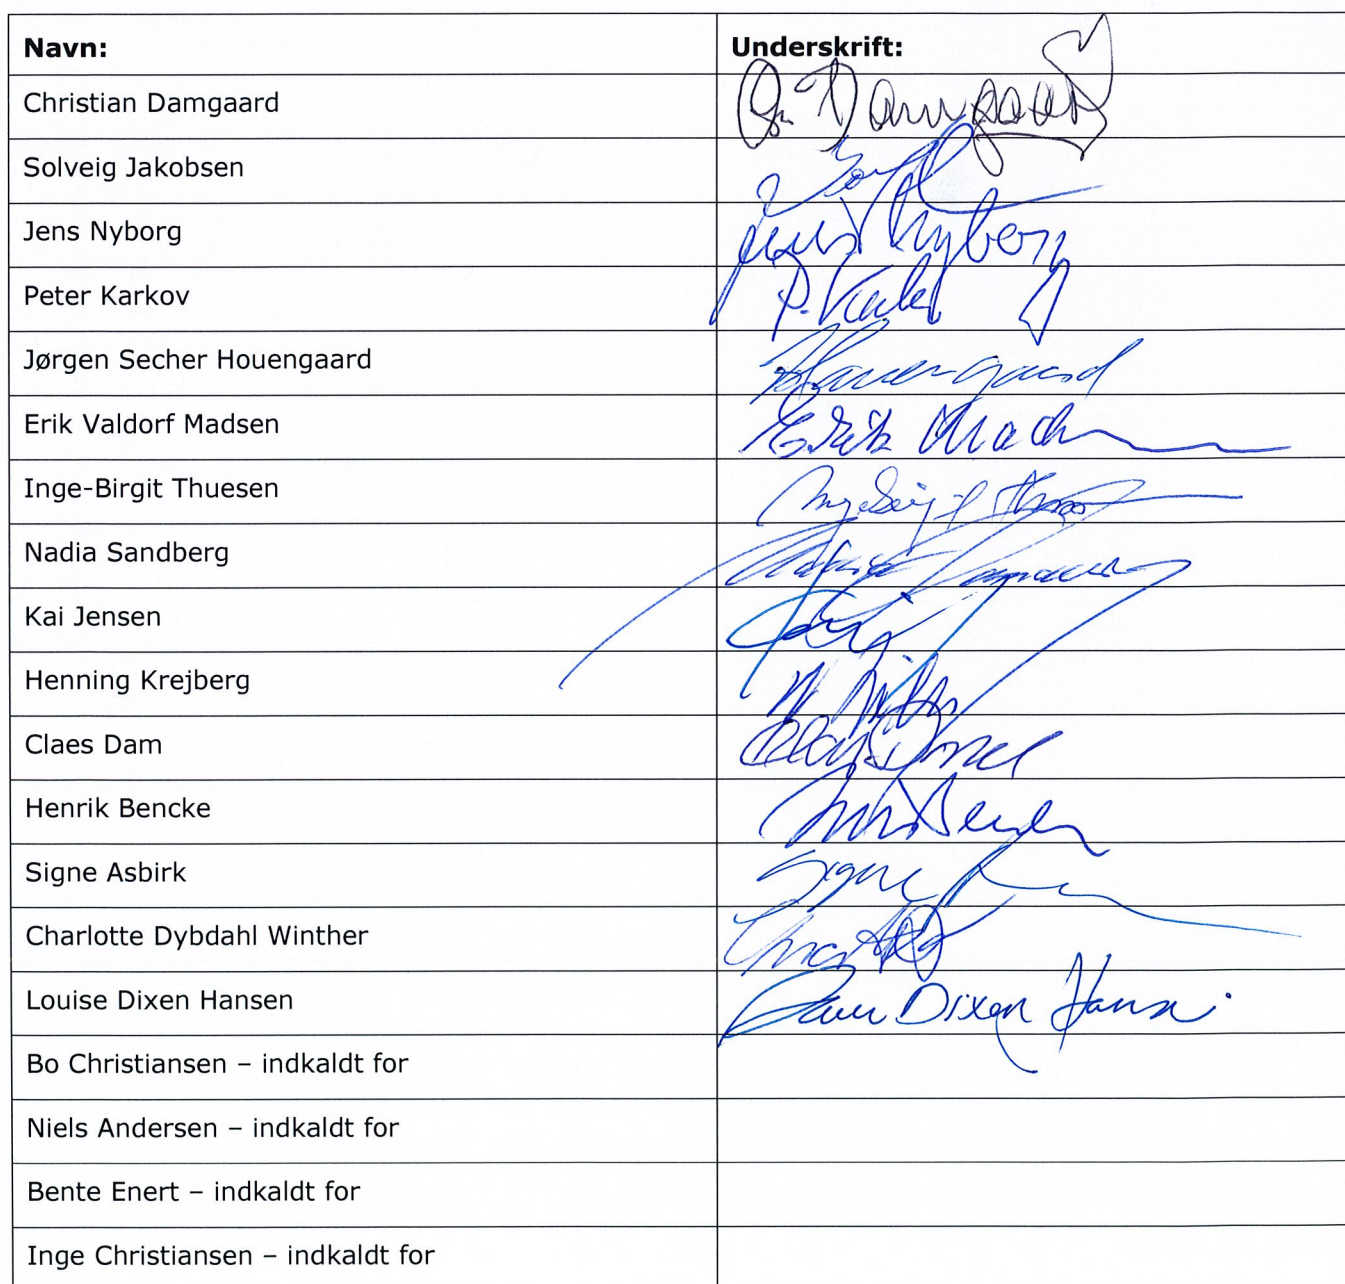 Navn: Underskrift:
Christian Damgaard Chr. Damgaard
Solveig Jakobsen
Jens Nyborg Jens Nyborg
Peter Karkov P. Karkov
Jørgen Secher Houengaard Houengaard
Erik Valdorf Madsen Erik Madsen
Inge-Birgit Thuesen
Nadia Sandberg
Kai Jensen
Henning Krejberg
Claes Dam
Henrik Bencke
Signe Asbirk Signe
Charlotte Dybdahl Winther
Louise Dixen Hansen Dixen Hansen
Bo Christiansen – indkaldt for
Niels Andersen – indkaldt for
Bente Enert – indkaldt for
Inge Christiansen – indkaldt for